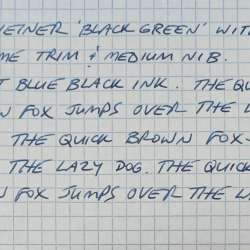 'BLACK GREEN' WIT
TRIM & MEDIUM NIB.
BLUE BLACK INK. THE QU
FOX JUMPS OVER THE L
THE QUICK BROWN FOX
THE LAZY DOG. THE QUICK
FOX JUMPS OVER THE LA